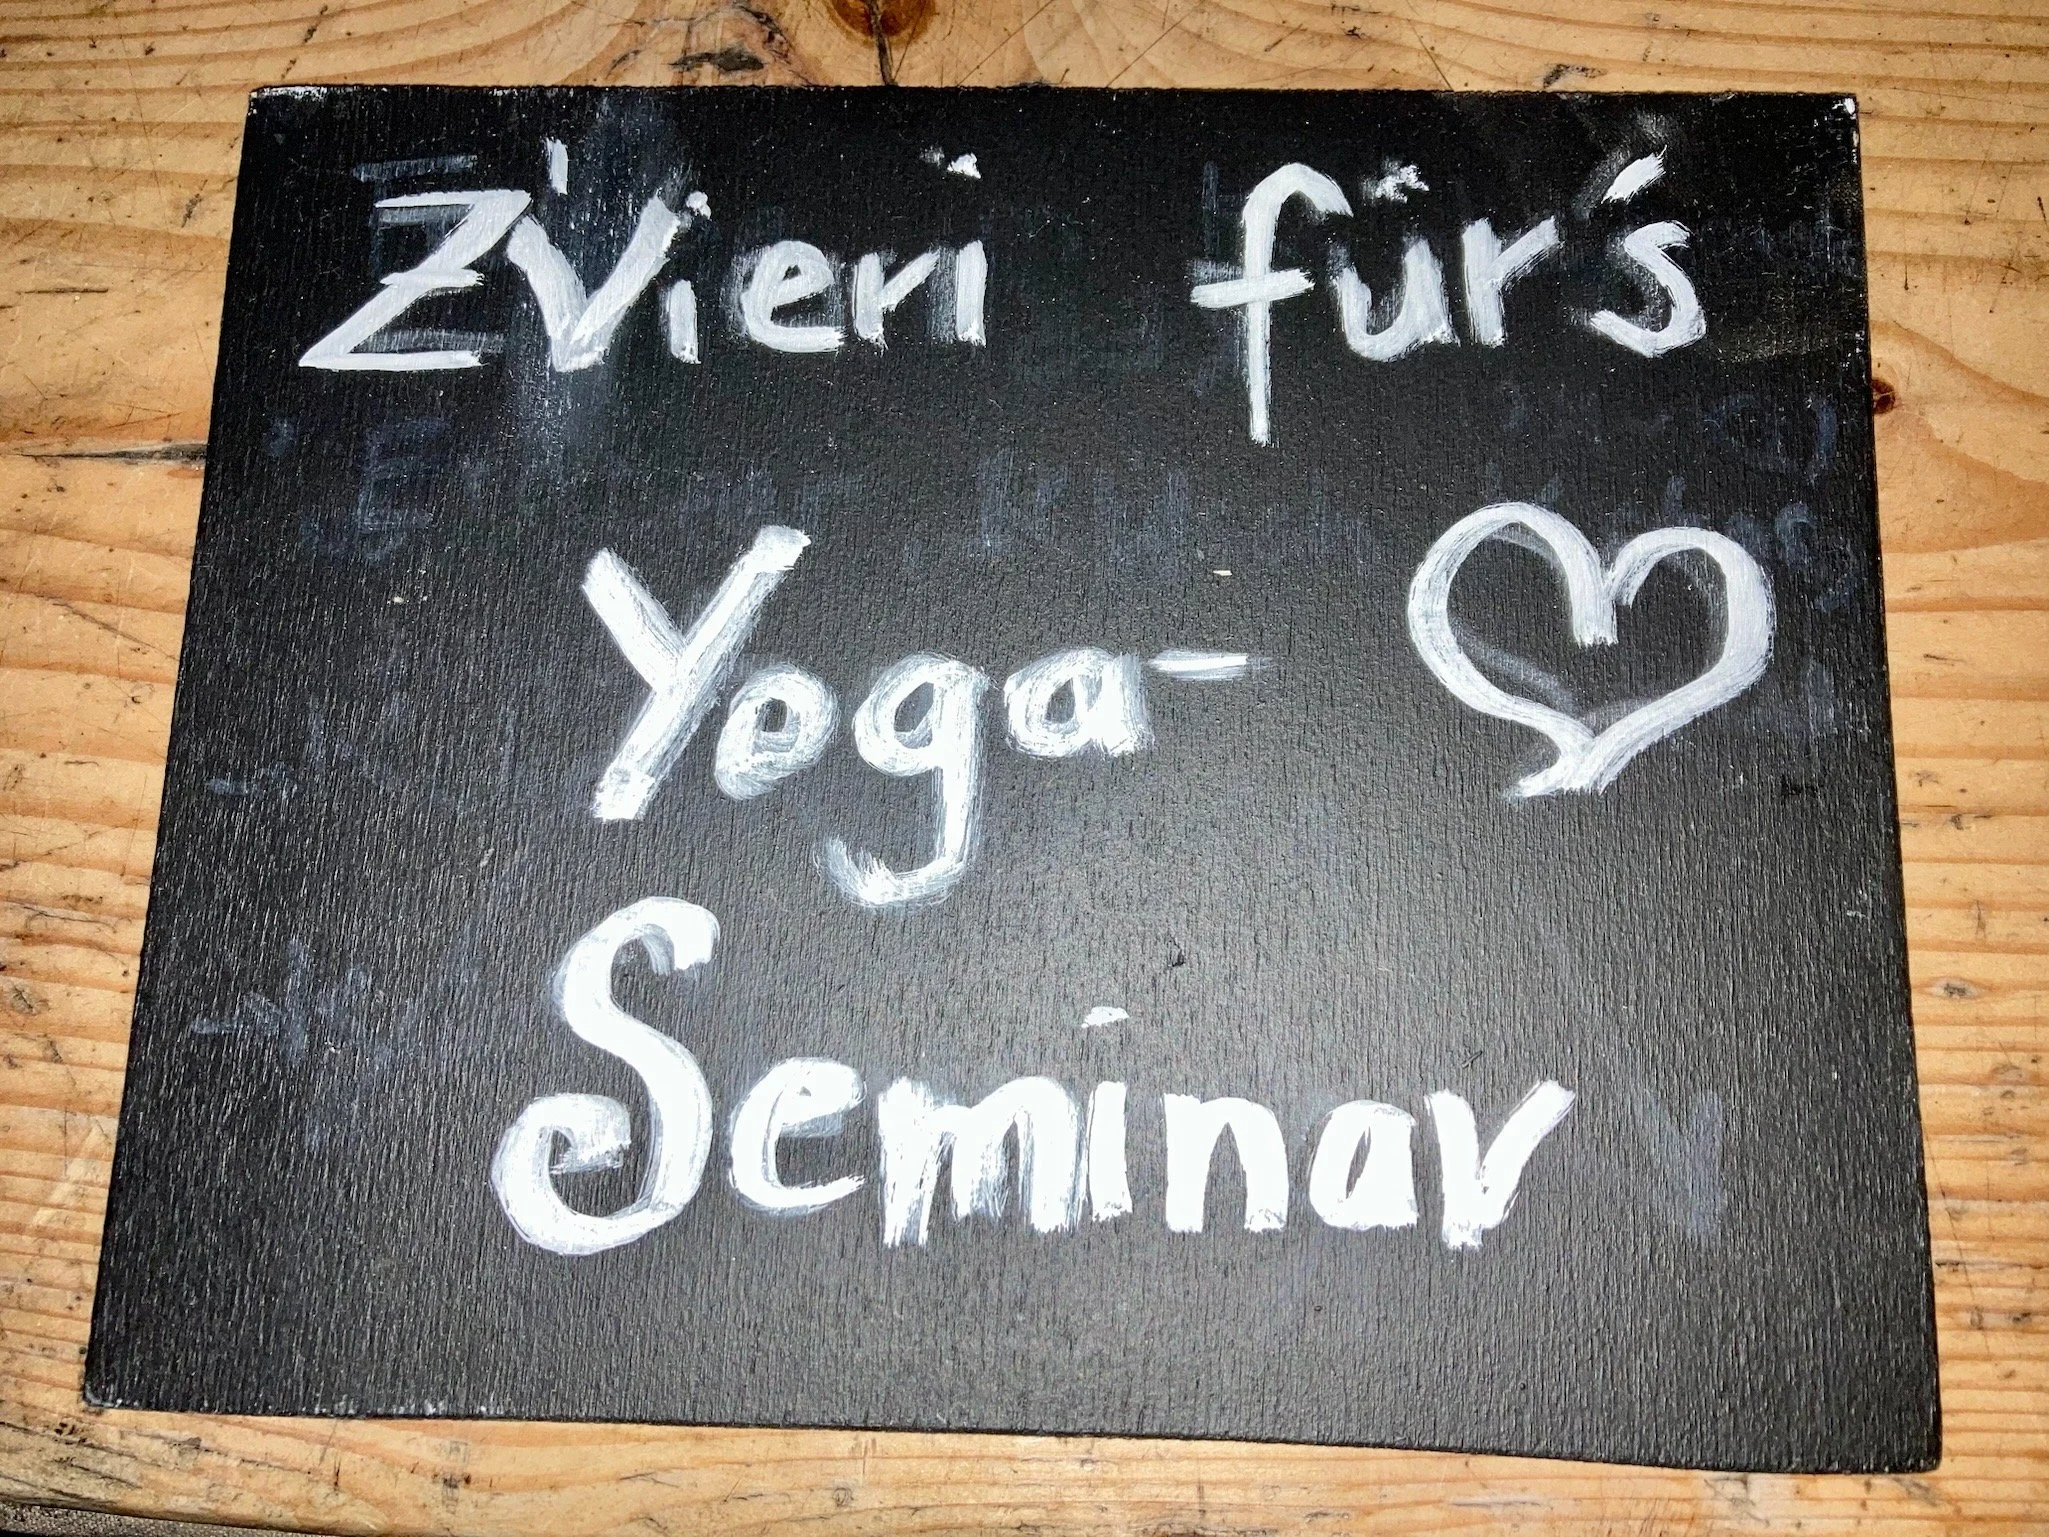 Z'Vieri für's
Yoga-
Seminar